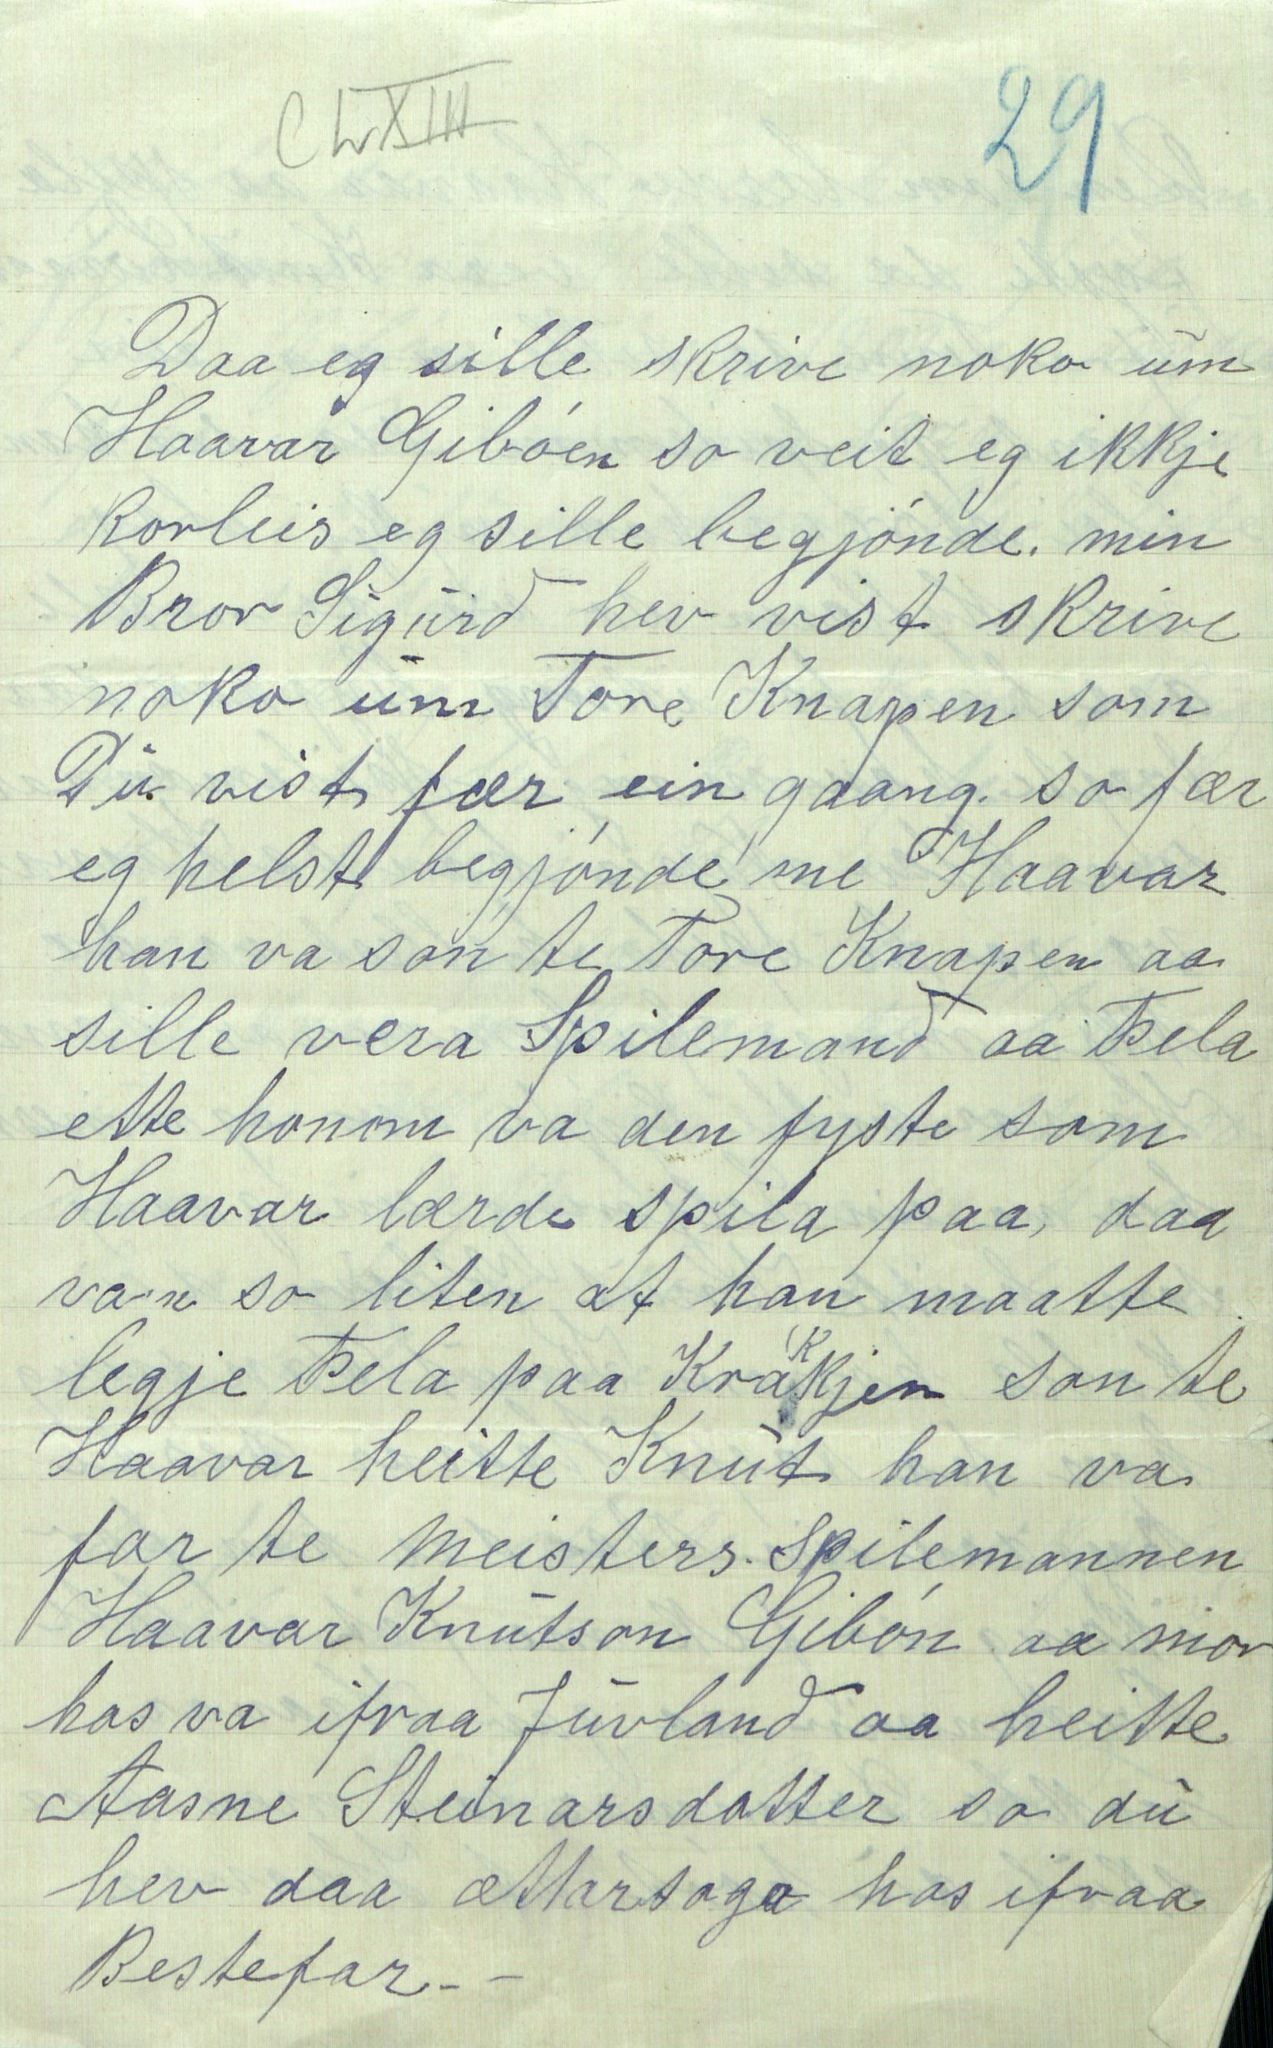 CLXIII
29
Daa eg sille skrive noko um
Haavar Gibóen so veit eg ikkje
korleis eg sille begjónde. min
Bror Sigurd hev vist skrive
noko um Tore Knapen som
Du vist fær ein gaang. so fær
eg helst begjónde me Haavar
han va són te Tore Knapen aa
sille vera Spilemand aa Fela
ette honom va den fyste som
Haavar lærde spila paa, daa
va'n so liten at han maatte
legje Fela paa Krakkjen son te
Haavar heitte Knut han va
far te meisters. spilemannen
Haavar Knutson Gibón aa mor
has va ifraa Juvland aa heitte
Aasne Steinarsdatter so du
hev daa ættarsoga has ifraa
Bestefar.--